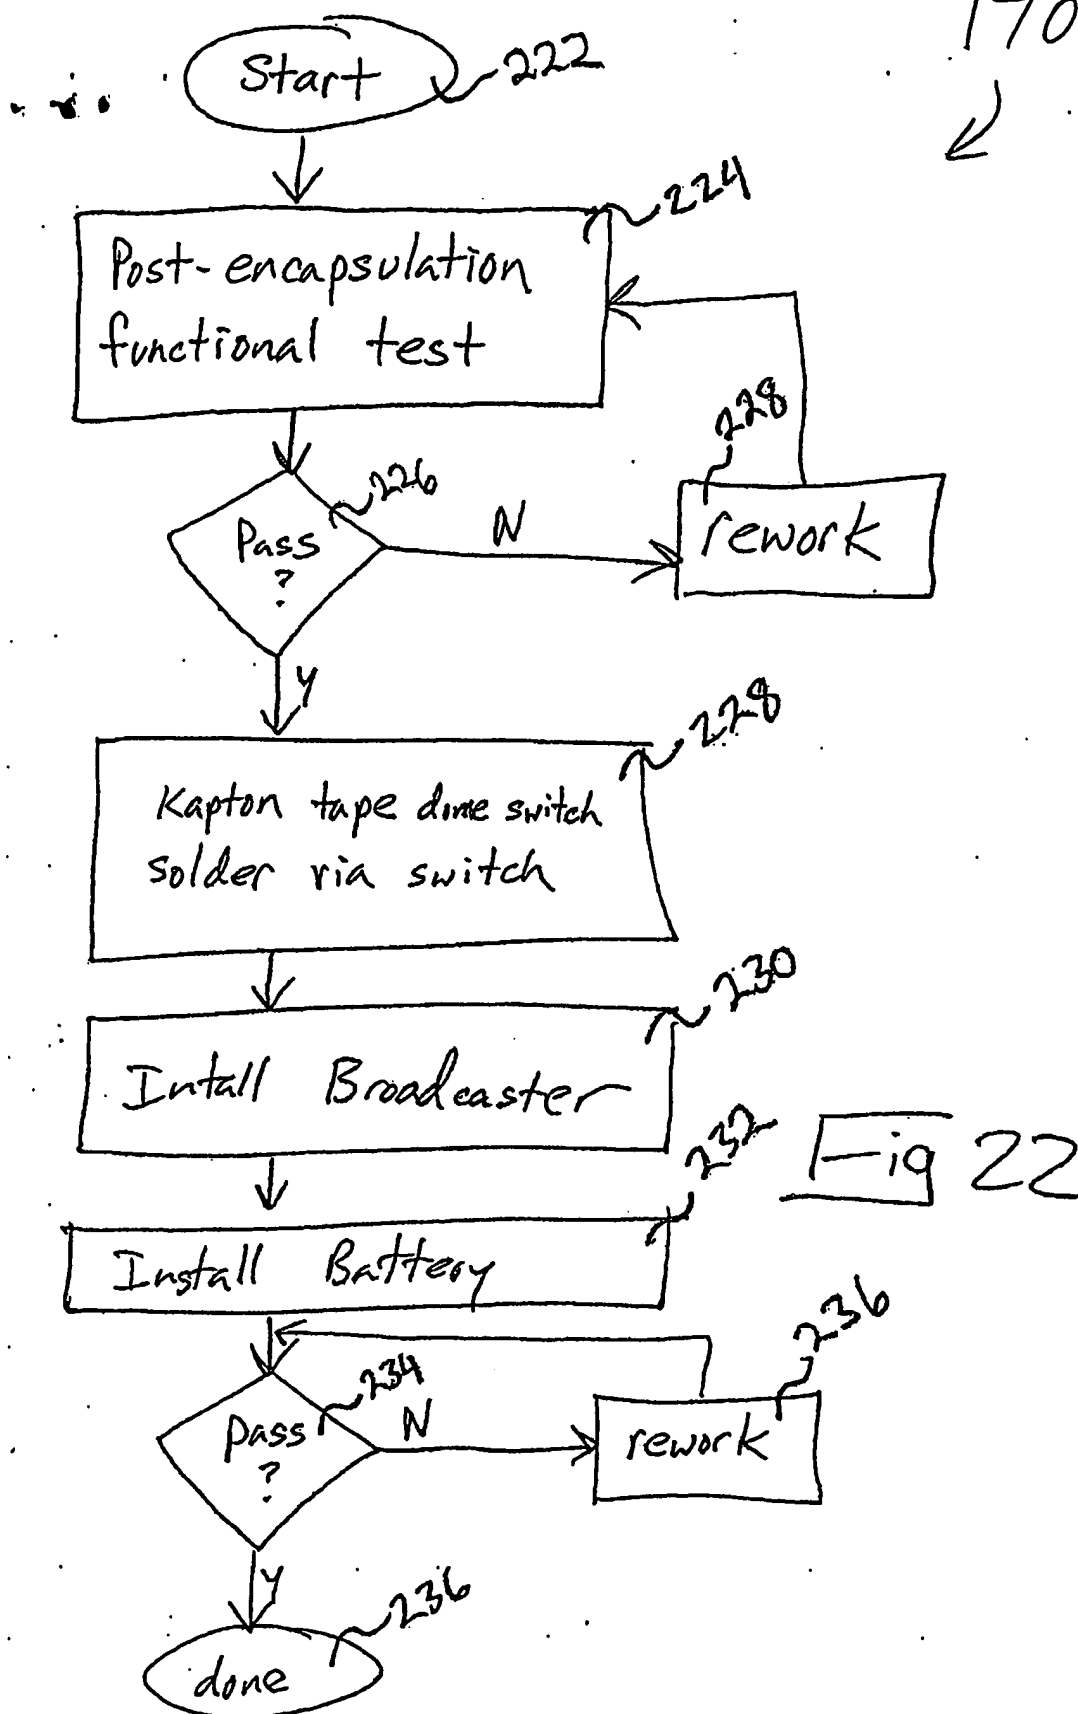 170
Start
222
224
Post-encapsulation
functional test
228
226
Pass
?
N
rework
Y
228
Kapton tape dome switch
solder via switch
230
Intall Broadcaster
232
Fig 22
Install Battery
236
234
Pass
?
N
rework
Y
236
done